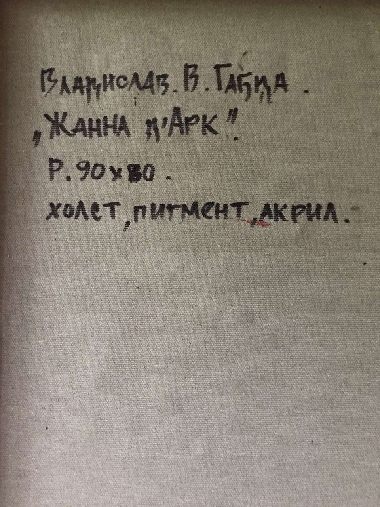 Владислав. В. Габда.
„Жанна д'Арк".
Р. 90х80.
холст, пигмент, акрил.